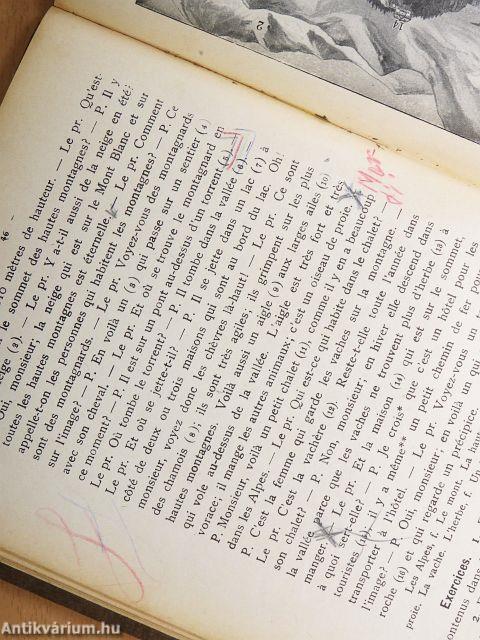 46 —
mètres de hauteur. — Le pr. Qu'est-
le sommet des hautes montagnes? — P. Il y
neige (2). — Le pr. Y a-t-il aussi de la neige en été?
Oui, monsieur; la neige qui est sur le Mont Blanc et sur
toutes les hautes montagnes est éternelle. — Le pr. Comment
appelle-t-on les personnes qui habitent les montagnes? — P. Ce
sont des montagnards. — Le pr. Voyez-vous des montagnards
sur l'image? — P. En voilà un (3) qui passe sur un sentier (4)
avec son cheval. — Le pr. Et où se trouve le montagnard en
ce moment? — P. Il est sur un pont au-dessus d'un torrent (5).
Le pr. Où tombe le torrent? — P. Il tombe dans la vallée (6). —
Le pr. Et où se jette-t-il? — P. Il se jette dans un lac (7) à
côté de deux ou trois maisons qui sont au bord du lac. Oh!
monsieur, voyez donc les chèvres là-haut! — Le pr. Ce sont
des chamois (8); ils sont très agiles; ils grimpent sur les plus
hautes montagnes. Voilà aussi un aigle (9) aux larges ailes (10)
qui vole au-dessus de la vallée. L'aigle est très fort et très
vorace; il mange les autres animaux; c'est un oiseau de proie.
P. Monsieur, voilà un petit chalet (11), comme il y en a beaucoup
dans les Alpes. — Le pr. Qui est-ce qui habite dans le chalet? —
P. C'est la femme qui garde les vaches sur la montagne. —
Le pr. C'est la vachère (12). Reste-t-elle toute l'année dans
son chalet? — P. Non, monsieur; en hiver elle descend dans
la vallée parce que les vaches ne trouvent plus d'herbe (13) à
manger. — Le pr. Et la maison (14) qui est sur le sommet,
à quoi sert-elle? — P. Je crois* que c'est un hôtel pour les
touristes; il y a même** un petit chemin de fer pour
transporter à l'hôtel. — Le pr. Voyez-vous un
l'image? — P. Oui, monsieur; en voilà un qui
roche (16) et qui regarde un précipice.
Les Alpes, f. Le mont. La
proie. La vache. L'herbe, f. Un
Exercices. 1.
contenus dans
2
14
Antikvárium.hu